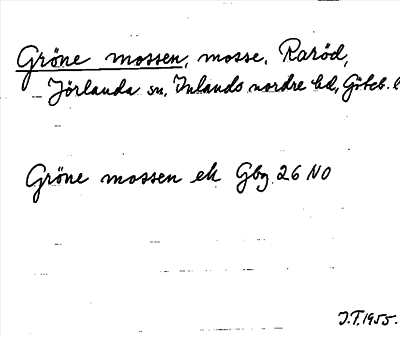 Gröne mossen, mosse, Raröd,
Jörlanda sn, Inlands nordre hd, Göteb. l
Gröne mossen ek Gbg 26 NO
J.T. 1955.